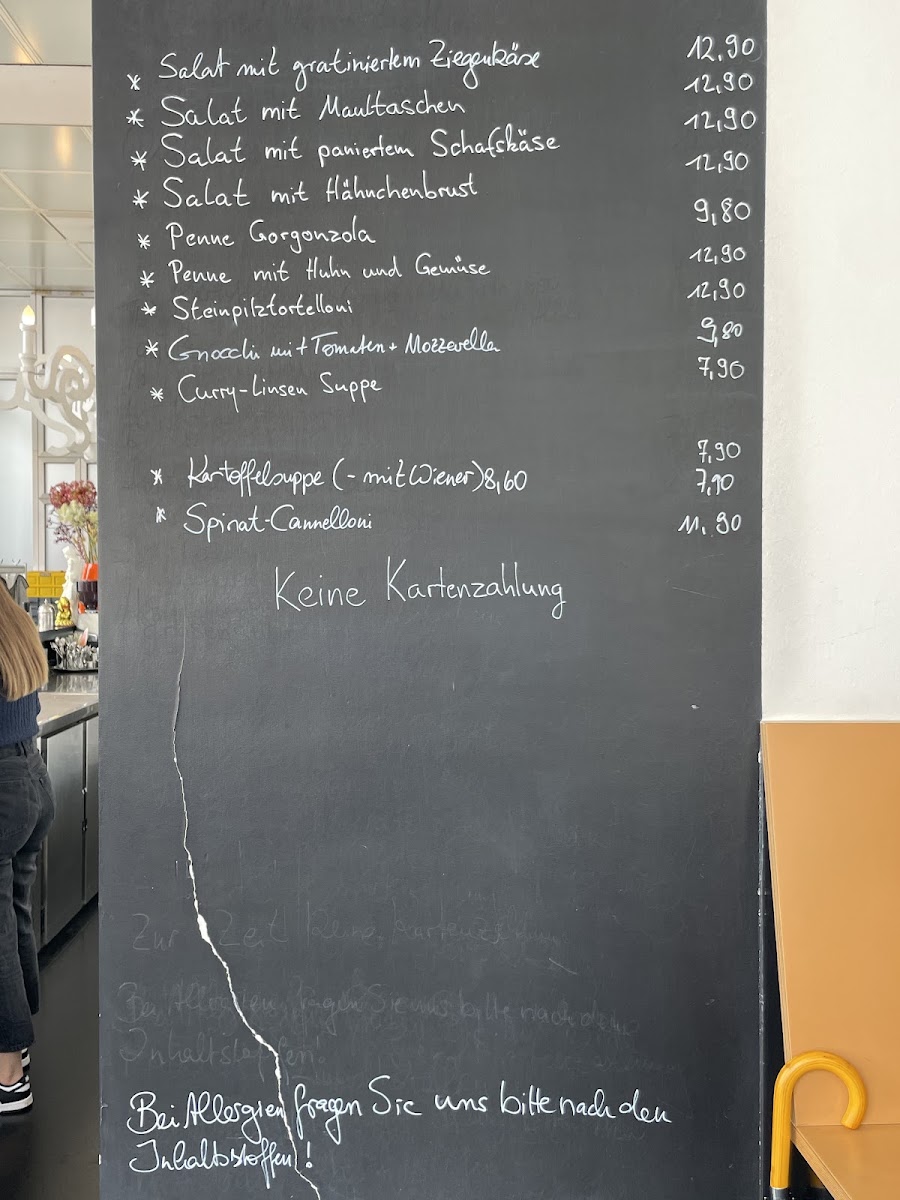 * Salat mit gratiniertem Ziegenkäse 12,90
* Salat mit Maultaschen 12,90
* Salat mit paniertem Schafskäse 12,90
* Salat mit Hähnchenbrust 12,90
* Penne Gorgonzola 9,80
* Penne mit Huhn und Gemüse 12,90
* Steinpilztortelloni 12,90
* Gnocchi mit Tomaten + Mozzerella 9,80
* Curry-Linsen Suppe 7,90
7,90
* Kartoffelsuppe (- mit Wiener) 8,60 7,90
* Spinat-Cannelloni 11,90
Keine Kartenzahlung
Zur Zeit keine
Bei Allergien fragen Sie uns bitte nach den
Inhaltstoffen!
Bei Allergien fragen Sie uns bitte nach den
Inhaltsstoffen!